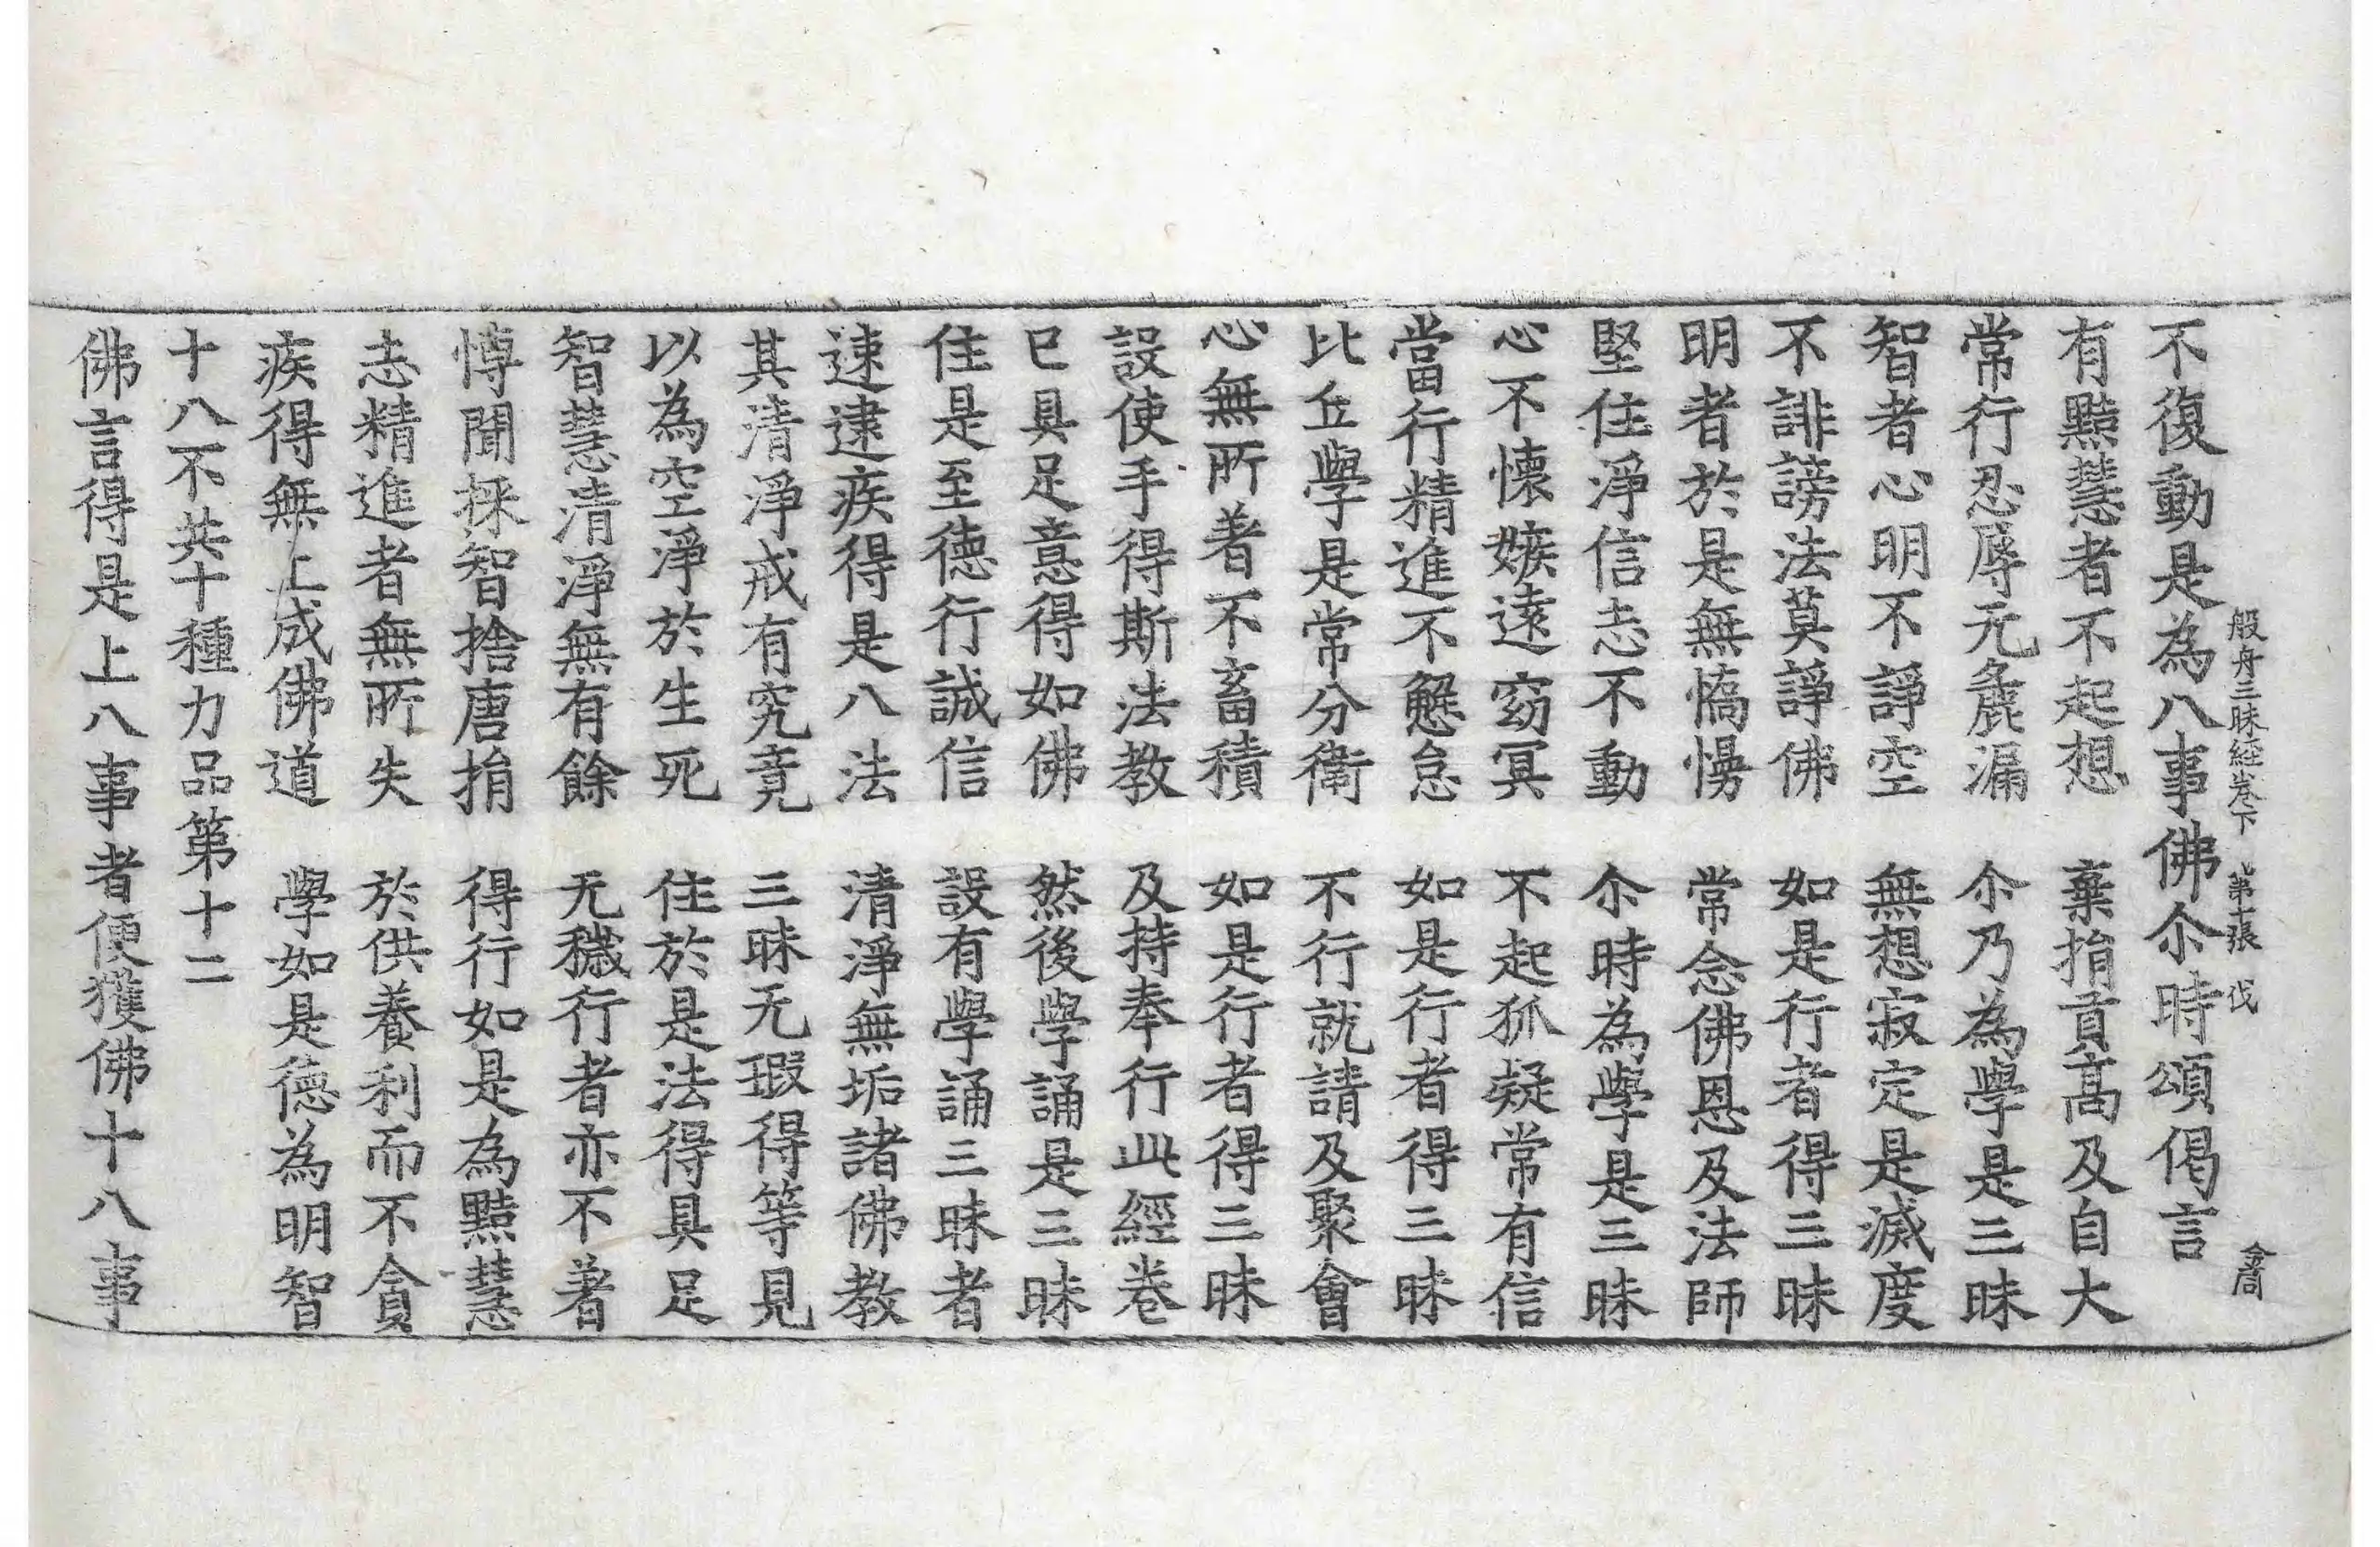 般舟三昧経卷下　第十張　伐　令同
不復動是為八事佛尒時頌偈言
有黠慧者不起想　棄捐貢高及自大
常行忍辱无麁漏　尒乃為學是三昧
智者心明不諍空　無想寂定是滅度
不誹謗法莫諍佛　如是行者得三昧
明者於是無憍慢　常念佛恩及法師
堅住淨信志不動　尒時為學是三昧
心不懷嫉遠窈冥　不起狐疑常有信
當行精進不懈怠　如是行者得三昧
比丘學是常分衛　不行就請及聚會
心無所著不畜積　如是行者得三昧
設使手得斯法教　及持奉行此經卷
已具足意得如佛　然後學誦是三昧
住是至德行誠信　設有學誦三昧者
速逮疾得是八法　清淨無垢諸佛教
其清淨戒有究竟　三昧无瑕得等見
以為空淨於生死　住於是法得具足
智慧清淨無有餘　无穢行者亦不著
博聞採智捨唐捐　得行如是為黠慧
志精進者無所失　於供養利而不貪
疾得無上成佛道　學如是德為明智
十八不共十種力品第十二
佛言得是上八事者便獲佛十八事